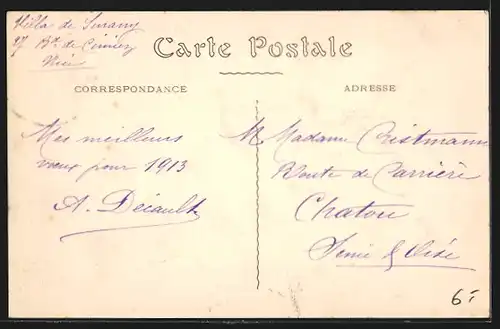 Villa de
17 Bd de Cimiez
Nice
Carte Postale
CORRESPONDANCE
ADRESSE
Mes meilleurs
vœux pour 1913
A. Decault
M Madame Cristmann
Route de Carrière
Chatou
Seine & Oise
6.-